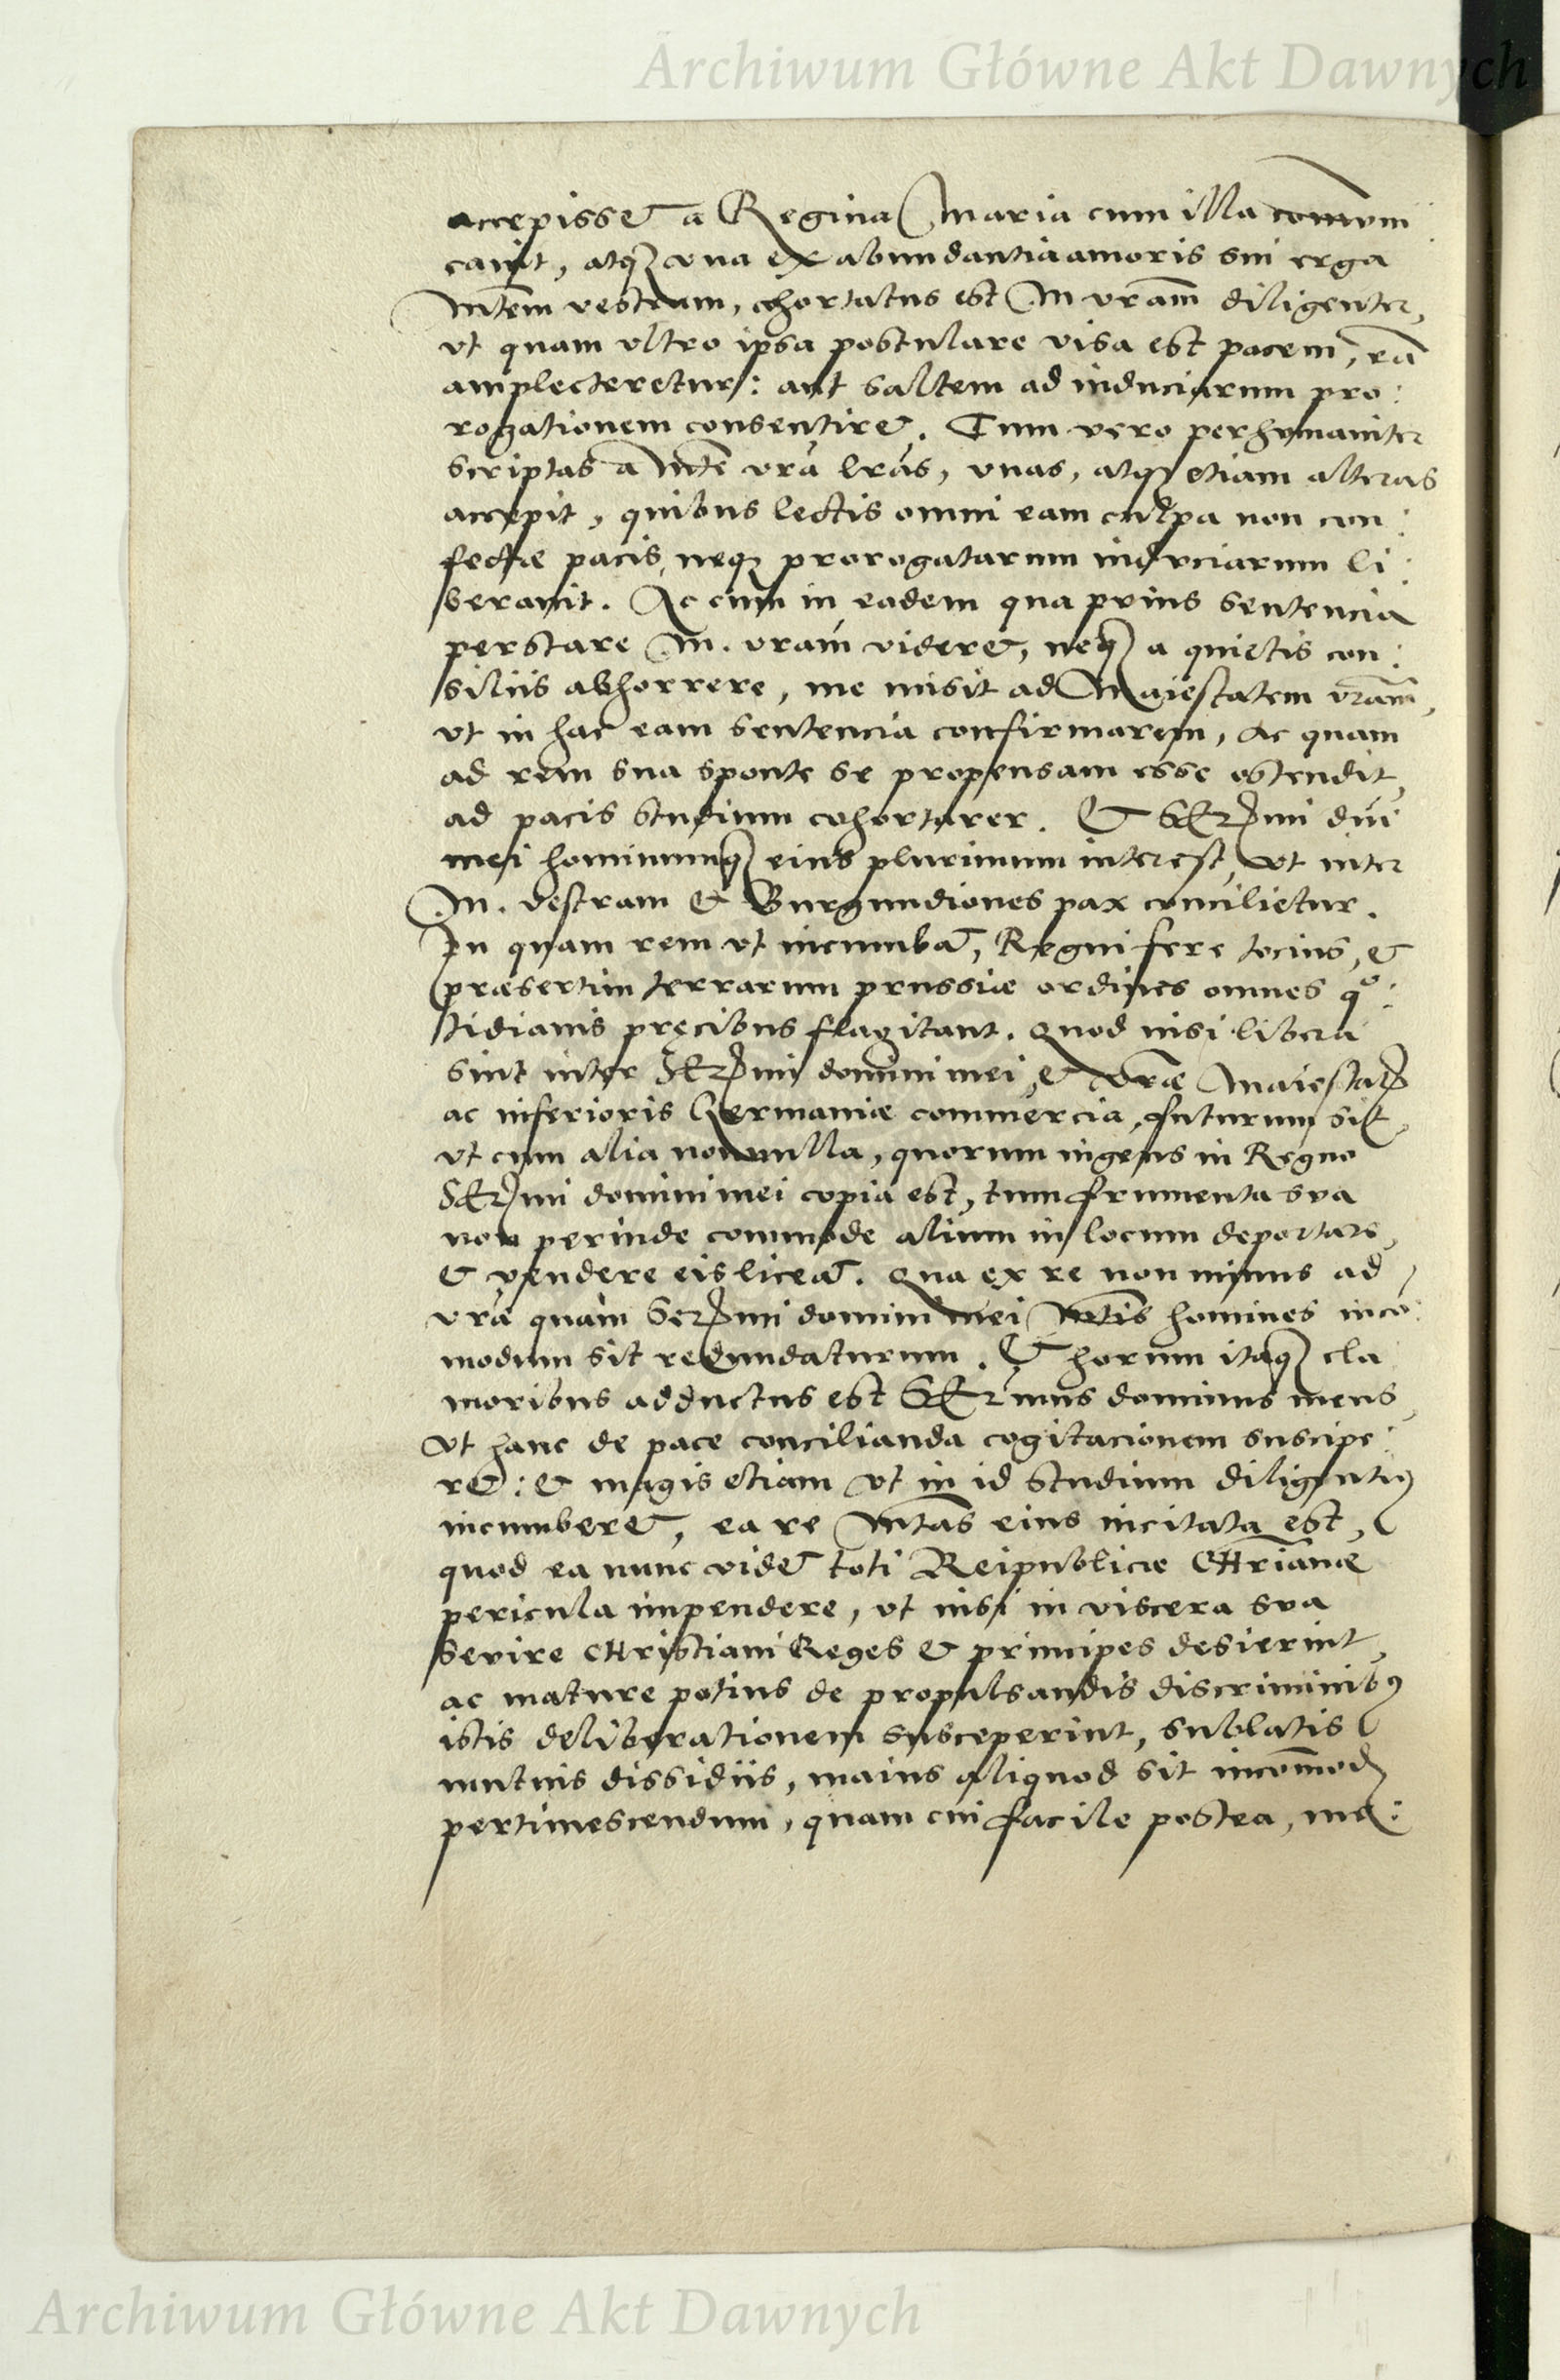 Archiwum Główne Akt Dawnych
accepisset a Regina Maria cum illa com̄uni
cavit, atq3 una ex abundantia amoris sui erga
Mtem vestram, cohortatus est M vram̄ diligenter,
ut quam ultro ipsa postulare visa est pacem, eā
amplecteretur: aut saltem ad induciarum pro:
rogationem consentiret. Tum vero perhumaniter
scriptas a Mte vrā lras, unas, atq3 etiam alteras
accepit, quibus lectis omni eam culpa non con:
fectae pacis, neq3 prorogatarum induciarum li:
beravit. Ac cum in eadem qua prius sentencia
perstare M. vram̄ videret, neq3 a quietis con:
siliis abhorrere, me misit ad Maiestatem vram̄,
ut in hac eam sentencia confirmarem, ac quam
ad rem sua sponte se propensam esse ostendit,
ad pacis studium cohortarer. Et SERmi dnī
mei hominumq3 eius plurimum interest, ut inter
M. vestram et Burgundiones pax concilietur.
In quam rem ut incumbat, Regni fere tocius, et
praesertim terrarum prussiae ordines omnes quo:
tidianis pręcibus flagitant. Quod nisi libera
sint inter SERmi domini mei, et vrae Maiestatis
ac inferioris Germaniae commercia, futurum sit,
ut cum alia nonnulla, quorum ingens in Regno
SERmi domini mei copia est, tum frumenta sua
non perinde commode alium in locum deportare,
et vendere eis liceat. Qua ex re non minus ad
vrae quam Sermi domini mei Mtis homines incō:
modum sit redundaturum. Et horum itaq3 cla
moribus adductus est SERmus dominus meus,
ut hanc de pace concilianda cogitacionem suscipe:
ret: et magis etiam ut in id studium diligentius
incumberet, ea re Mtas eius incitata est,
quod ea nunc videt toti Reipublicae CHrianae
pericula impendere, ut nisi in viscera sua
sevire CHristiani Reges et principes desierint,
ac mature potius de propulsandis discriminibus
istis deliberationem susceperint, sublatis
mutuis dissidiis, maius aliquod sit incom̄od
pertimescendum, quam cui facile postea, me:
Archiwum Główne Akt Dawnych